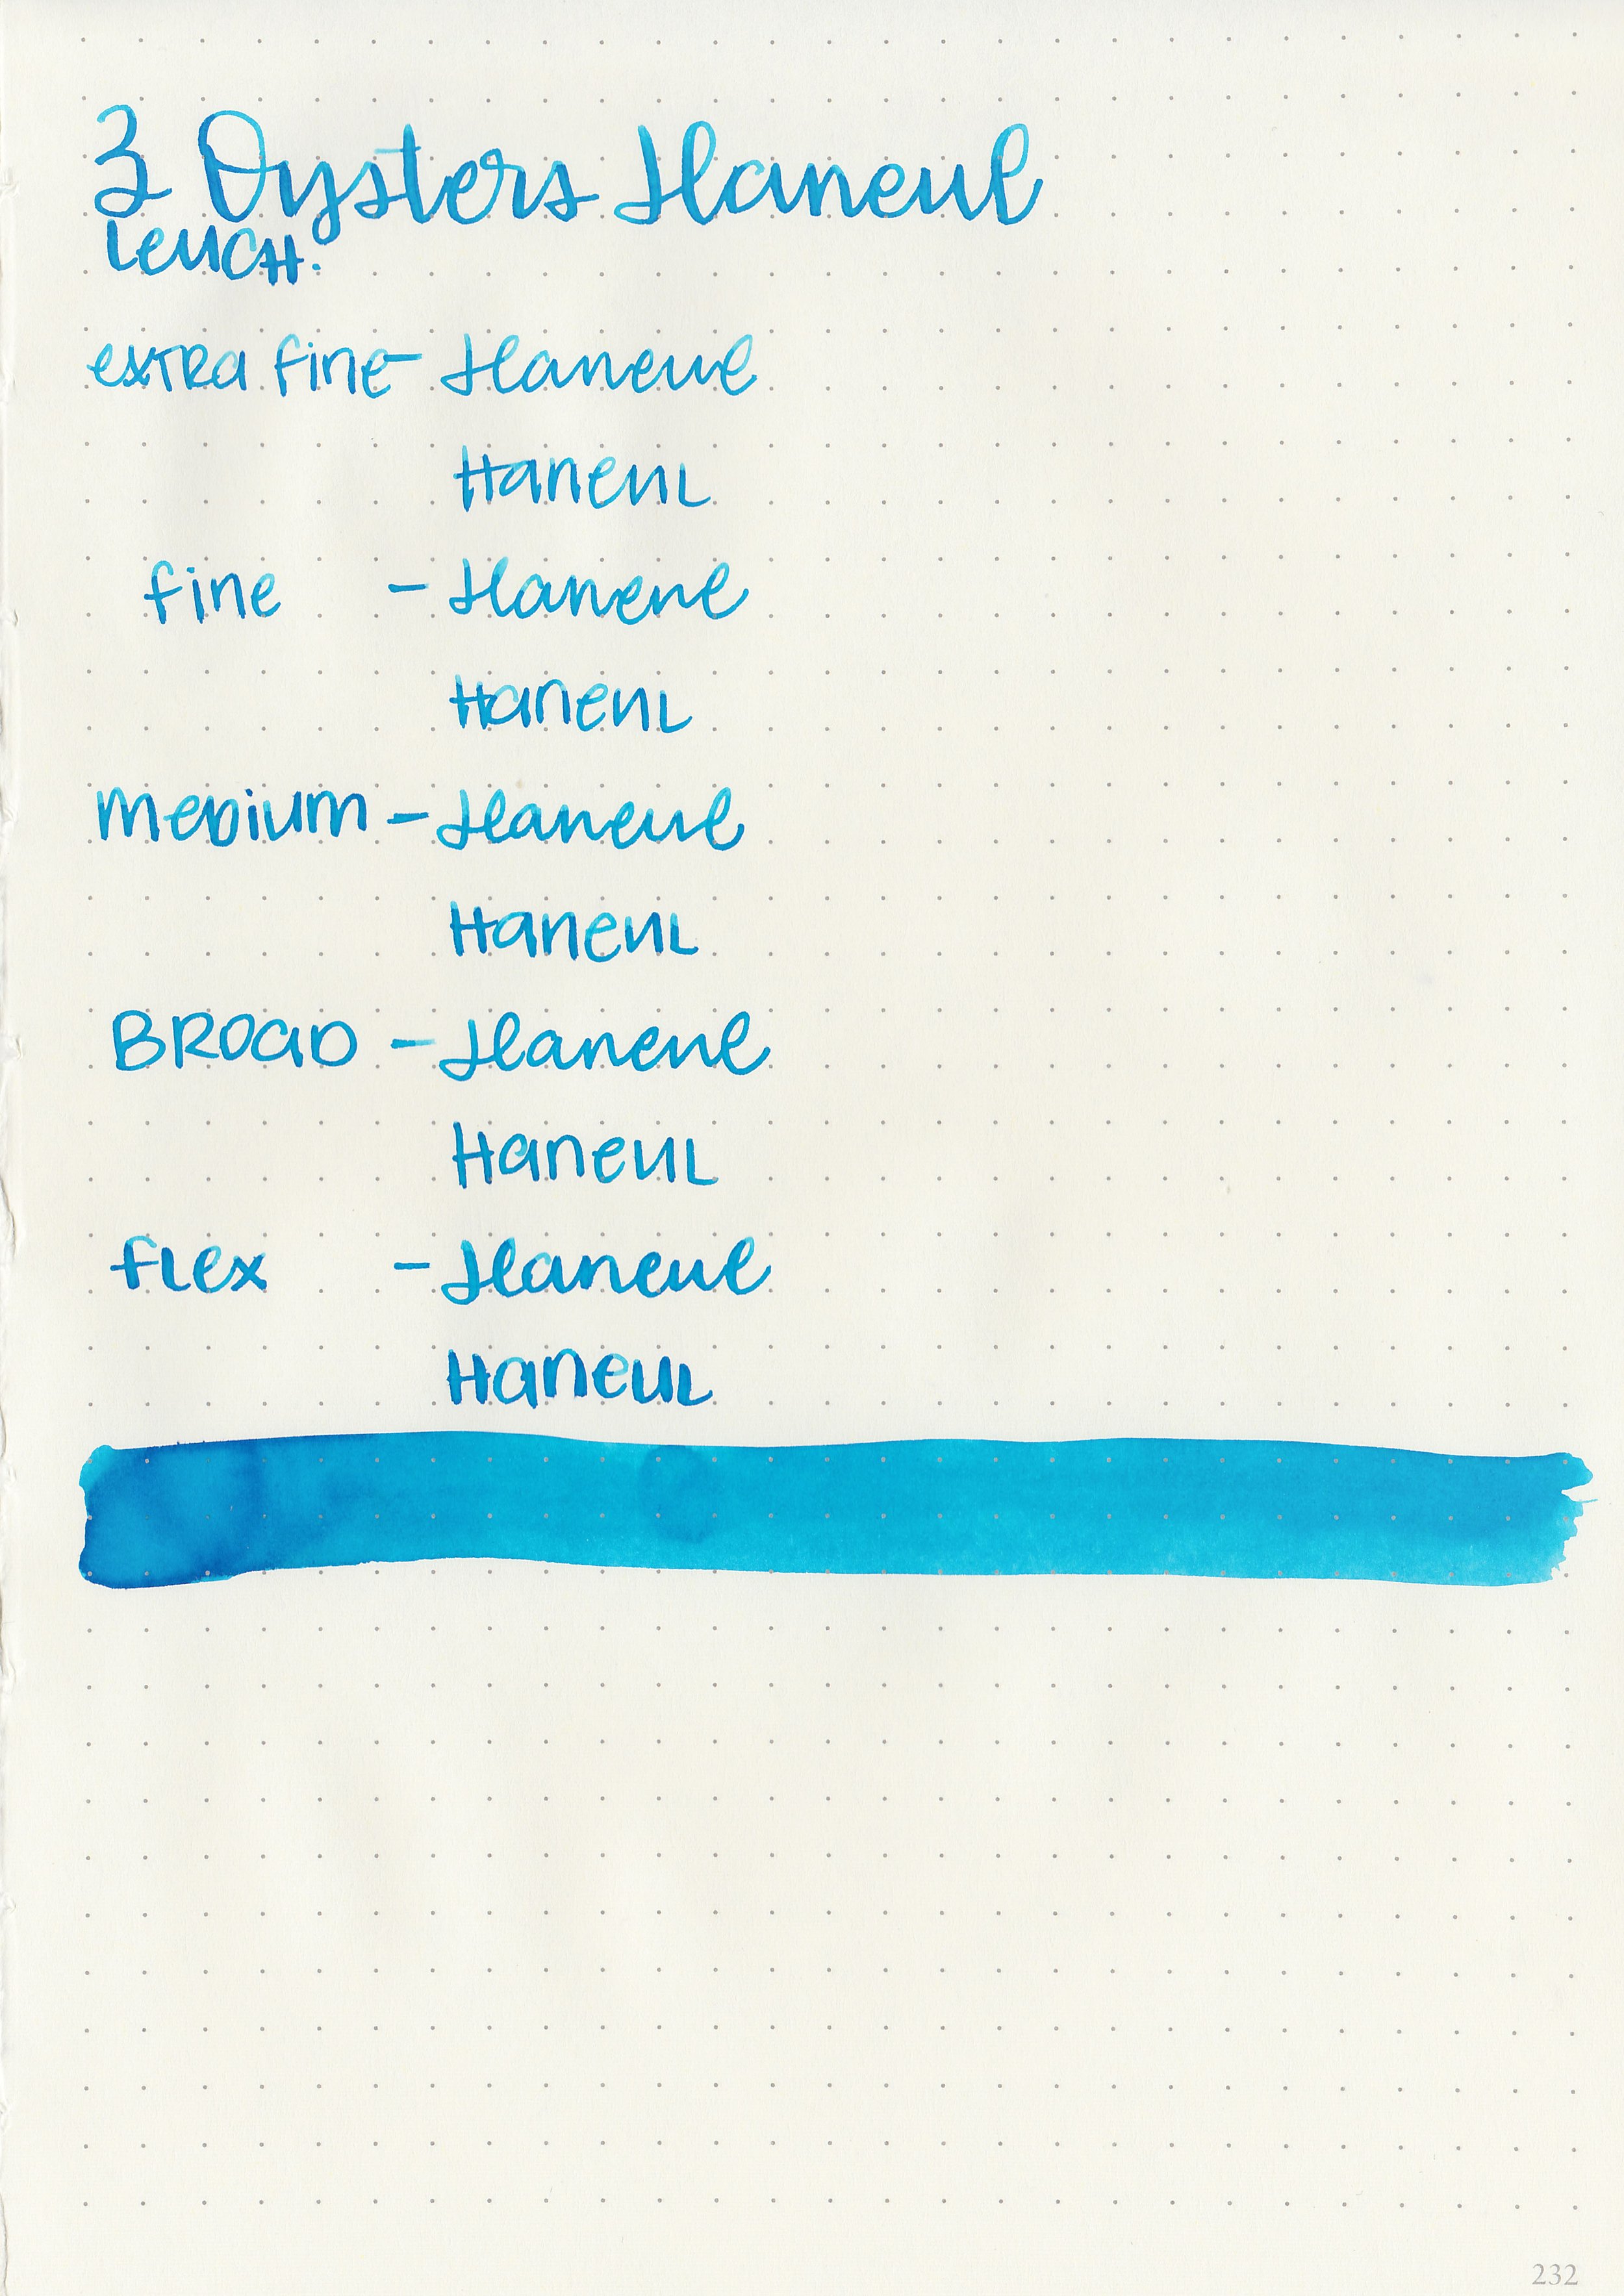 3 Oysters Haneul
Leuch.
extra fine - Haneul
Haneul
fine - Haneul
Haneul
medium - Haneul
Haneul
BROAD - Haneul
Haneul
flex - Haneul
Haneul
232